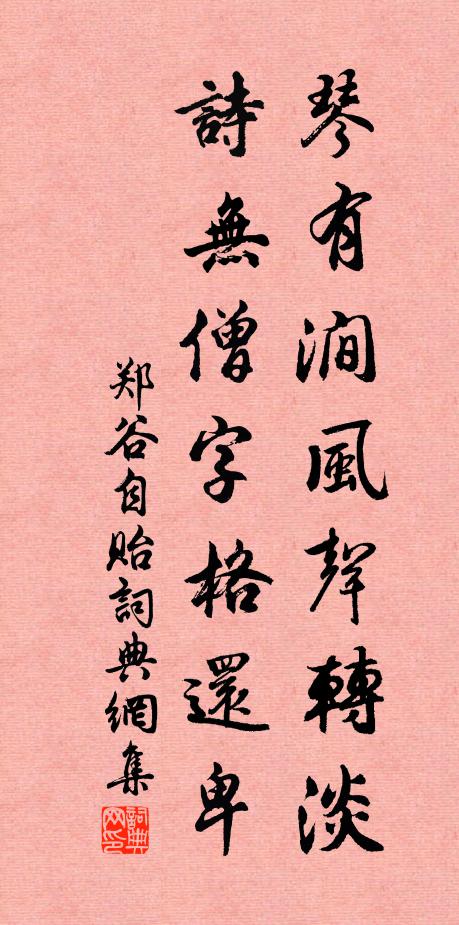 琴有澗風聲轉淡
詩無僧字格還卑
郑谷自貽詞典網集
詞典网印